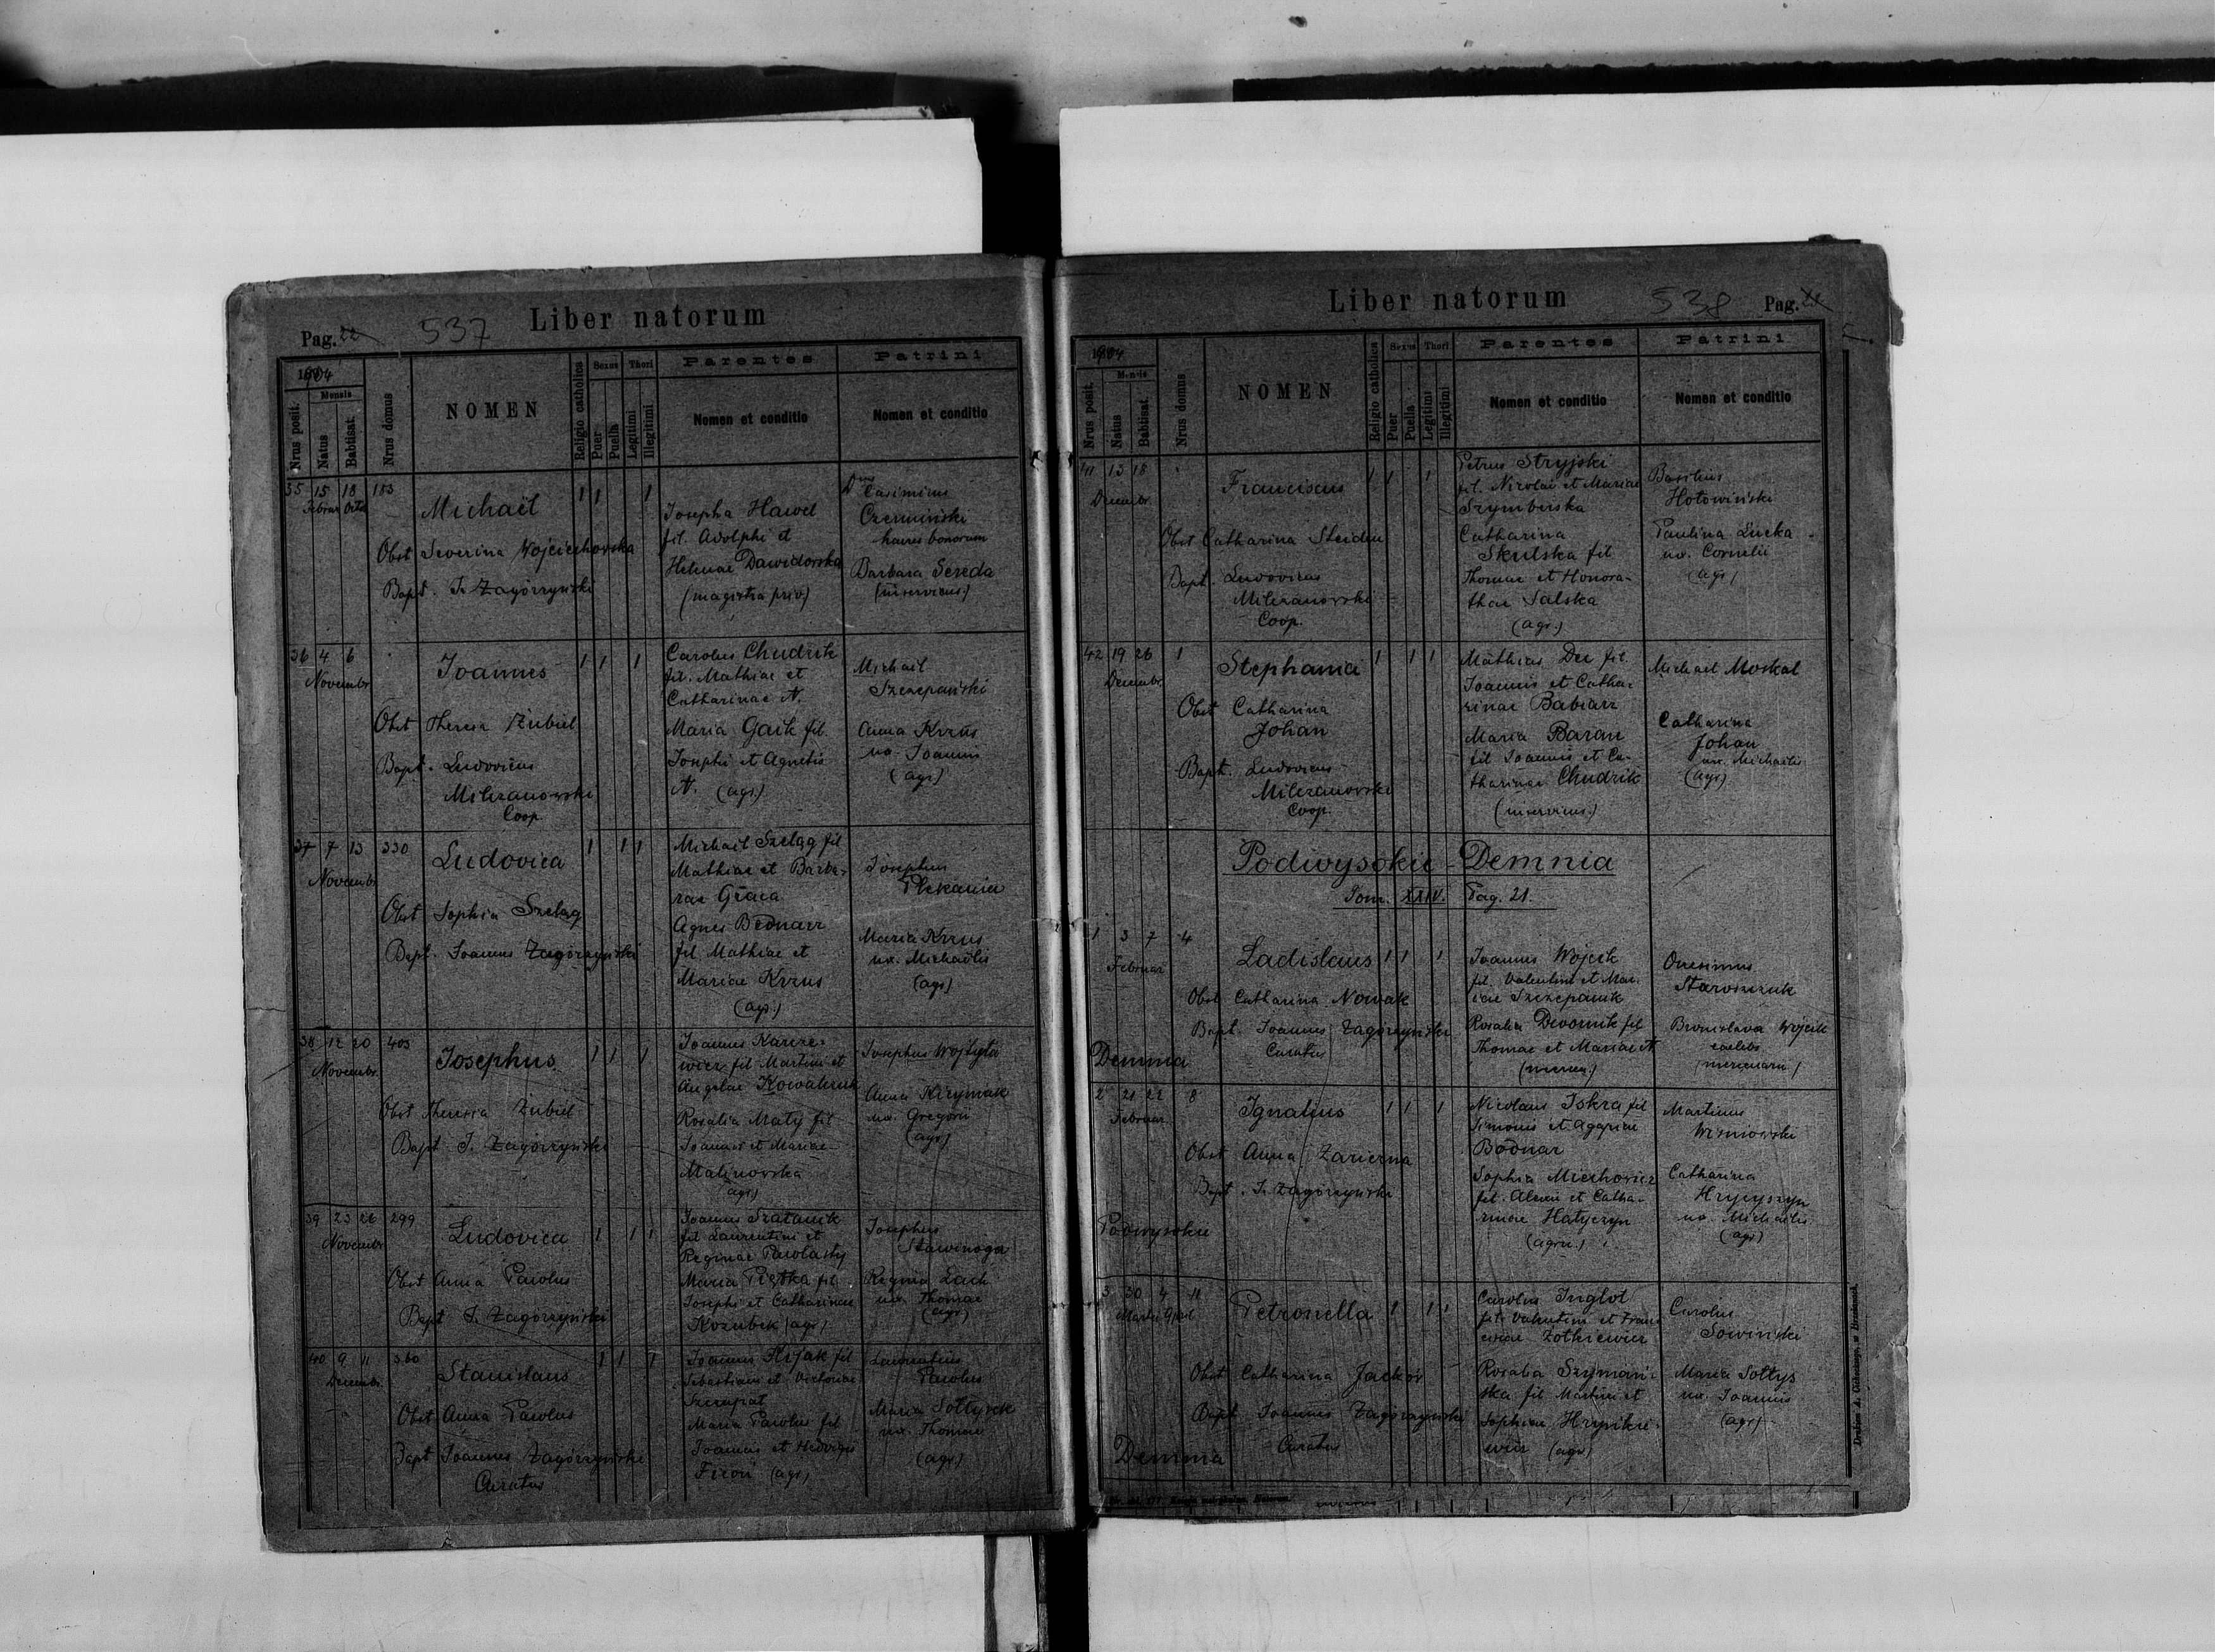 Liber natorum
Pag. 22
537
1904
Nrus posit.
Mensis
Natus
Babtisat.
Nrus domus
NOMEN
Religio catholica
Sexus
Puer
Puella
Thori
Legitimi
Illegitimi
Parentes
Nomen et conditio
Patrini
Nomen et conditio
35 15 18 153
Februar Octo
Michaël
1 1 1
Obst Severina Wojciechowska
Bapt. I. Zagórzyński
Josepha Hawel
fil. Adolphi et
Helenae Dawidowska
(magistra priv.)
Dnus Casimirus
Czermiński
haeres bonorum
Barbara Sereda
(inserviens.)
36 4 6
Novembr.
Joannes
1 1 1
Obst Theresa Zubiel
Bapt. Ludovicus
Milezanowski
Coop.
Carolus Chudzik
fil. Mathiae et
Catharinae N.
Maria Gaik fil.
Josephi et Agnetis
N. (agr.)
Michael
Szczepański
Anna Krzus
ux. Joannis
(agr.)
37 7 13 330
Novembr.
Ludovica
1 1 1
Obst Sophia Szeląg
Bapt. Joannes Zagórzyński
Michael Szeląg fil
Mathiae et Barba-
rae Graca
Agnes Bednarz
fil. Mathiae et
Mariae Krzus
(agr.)
Josephus
Plekania
Maria Krzus
ux. Michaëlis
(agr.)
38 12 20 403
Novembr.
Josephus
1 1 1
Obst Theresia Zubiel
Bapt. I. Zagórzyński
Joannes Karcze-
wicz fil Martini et
Angelae Kowalczuk
Rosalia Mały fil
Joannis et Mariae
Malinowska
agr.)
Josephus Wojtyła
Anna Krzymak
ux. Gregorii
(agr.)
39 23 26 299
Novembr.
Ludovica
1 1 1
Obst Anna Pawlus
Bapt I. Zagórzyński
Joannes Szatanik
fil Laurentini et
Reginae Pawlasty
Maria Piętka fil
Josephi et Catharinae
Kozubek (agr.)
Josephus
Stawinoga
Regina Lach
ux. Thomae
(agr.)
40 9 11 360
Decembr.
Stanislaus
1 1 1
Obst Anna Pawlus
Bapt Joannes Zagórzyński
Curatus
Joannes Kijak fil
Sebastiani et Victoriae
Maria Pawlus fil
Joannis et Hedvigis
(agr.)
Laurentius
Pawlus
Maria Sołtysek
ux. Thomae
(agr.)
Liber natorum
538
Pag.
1904
Nrus posit.
Mensis
Natus
Babtisat.
Nrus domus
NOMEN
Religio catholica
Sexus
Puer
Puella
Thori
Legitimi
Illegitimi
Parentes
Nomen et conditio
Patrini
Nomen et conditio
41 13 18
Decembr.
Franciscus
1 1 1
Obst Catharina Steiden
Bapt. Ludovicus
Milezanowski
Coop.
Petrus Stryjski
fil. Nicolai et Mariae
Szymberska
Catharina
Skulska fil
Thomae et Honora-
thae Salska
(agr.)
Basilius
Hołowiński
Paulina Lucka
ux. Cornelii
(agr.)
42 19 26 1
Decembr.
Stephania
1 1 1
Obst Catharina
Johan
Bapt. Ludovicus
Milezanowski
Coop.
Mathias Dec fil.
Joannis et Catha-
rinae Babiarz
Maria Baran
fil Joannis et Ca-
tharinae Chudzik
(inserviens.)
Michael Moskal
Catharina
Johan
ux. Michaelis
(agr.)
Podwysokie-Demnia
Tom. XXIV. Pag. 21.
1 3 7 4
Februar
Ladislaus
1 1 1
Obst Catharina Nowak
Bapt. Joannes Zagórzyński
Curatus
Demnia
Joannes Wójcik
fil. Valentini et Mar-
iae Szczepanik
Rosalia Dwornik fil
Thomae et Mariae N
(mercen.)
Onesimus
Staroszczuk
Bronislava Wójcik
caelebs
(mercenarii)
2 21 22 8
Februar
Ignatius
1 1 1
Obst Anna Zarierna
Bapt. I. Zagórzyński
Podwysokie
Nicolaus Iskra fil
Simonis et Agapiae
Bodnar
Sophia Miechowicz
fil. Alexii et Catha-
rinae Hałyczyn
(agric.)
Martinus
Wisniowski
Catharina
Hrycyszyn
ux. Michaëlis
(agr.)
3 30 4 11
Martii April
Petronella
1 1 1
Obst Catharina Jacków
Bapt Joannes Zagórzyński
Curatus
Demnia
Carolus Inglot
fil. Valentini et Fran-
ciscae Żołkiewicz
Rosalia Szymani-
ska fil Martini et
Sophiae Hrynkie-
wicz (agr.)
Carolus
Sowiński
Maria Sołtys
ux. Joannis
(agr.)